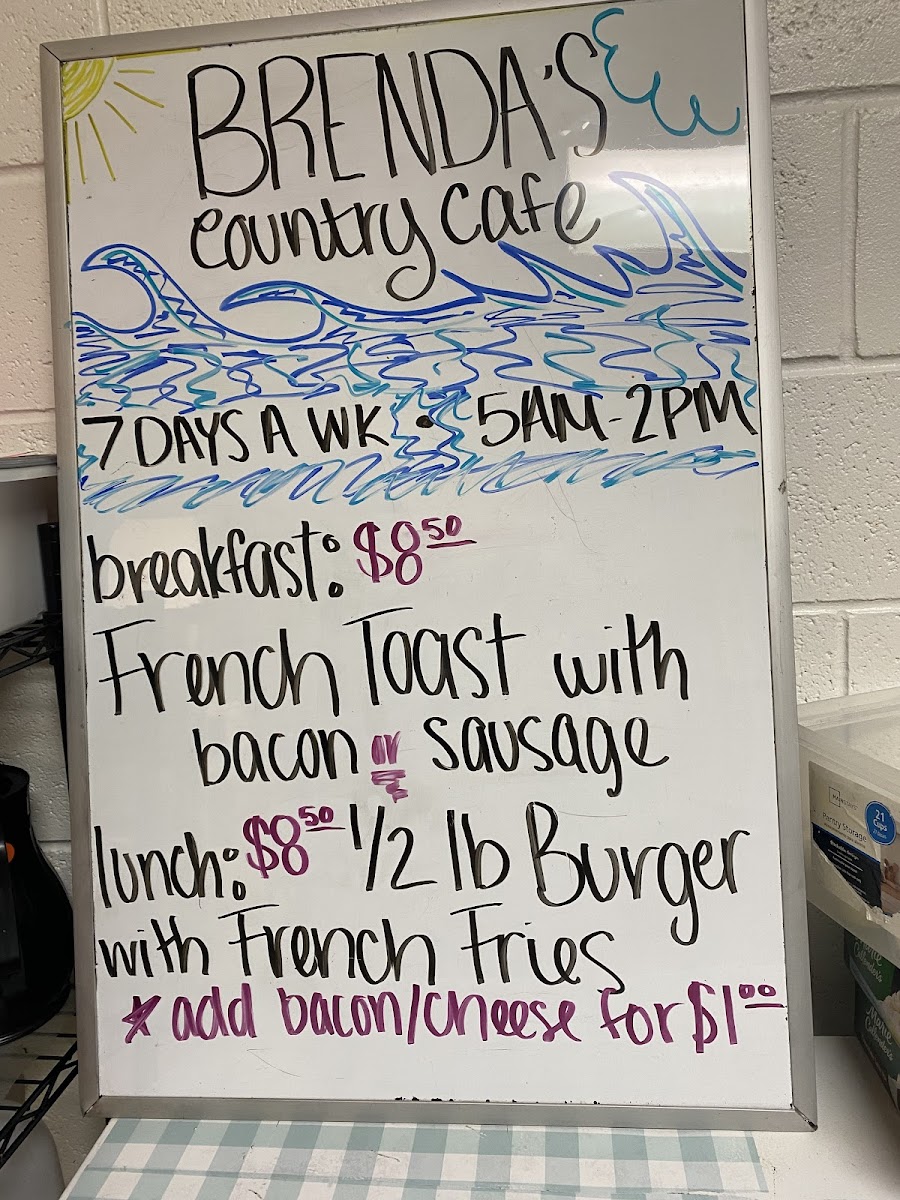 BRENDA'S
country cafe
7 DAYS A WK • 5AM-2PM
breakfast: $8 50
French Toast with
bacon or sausage
lunch: $8 50 1/2 lb Burger
with French Fries
* add bacon/cheese for $1 00
21
Cups
Pantry Storage
Marie
Callender's